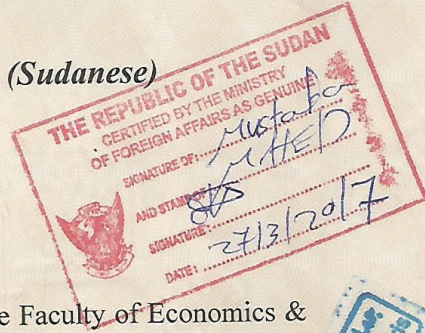 (Sudanese)
THE REPUBLIC OF THE SUDAN
CERTIFIED BY THE MINISTRY
OF FOREIGN AFFAIRS AS GENUINE
SIGNATURE OF: Mustafa
AND STAMP OF MHE
SIGNATURE:
DATE: 27/3/2017
e Faculty of Economics &